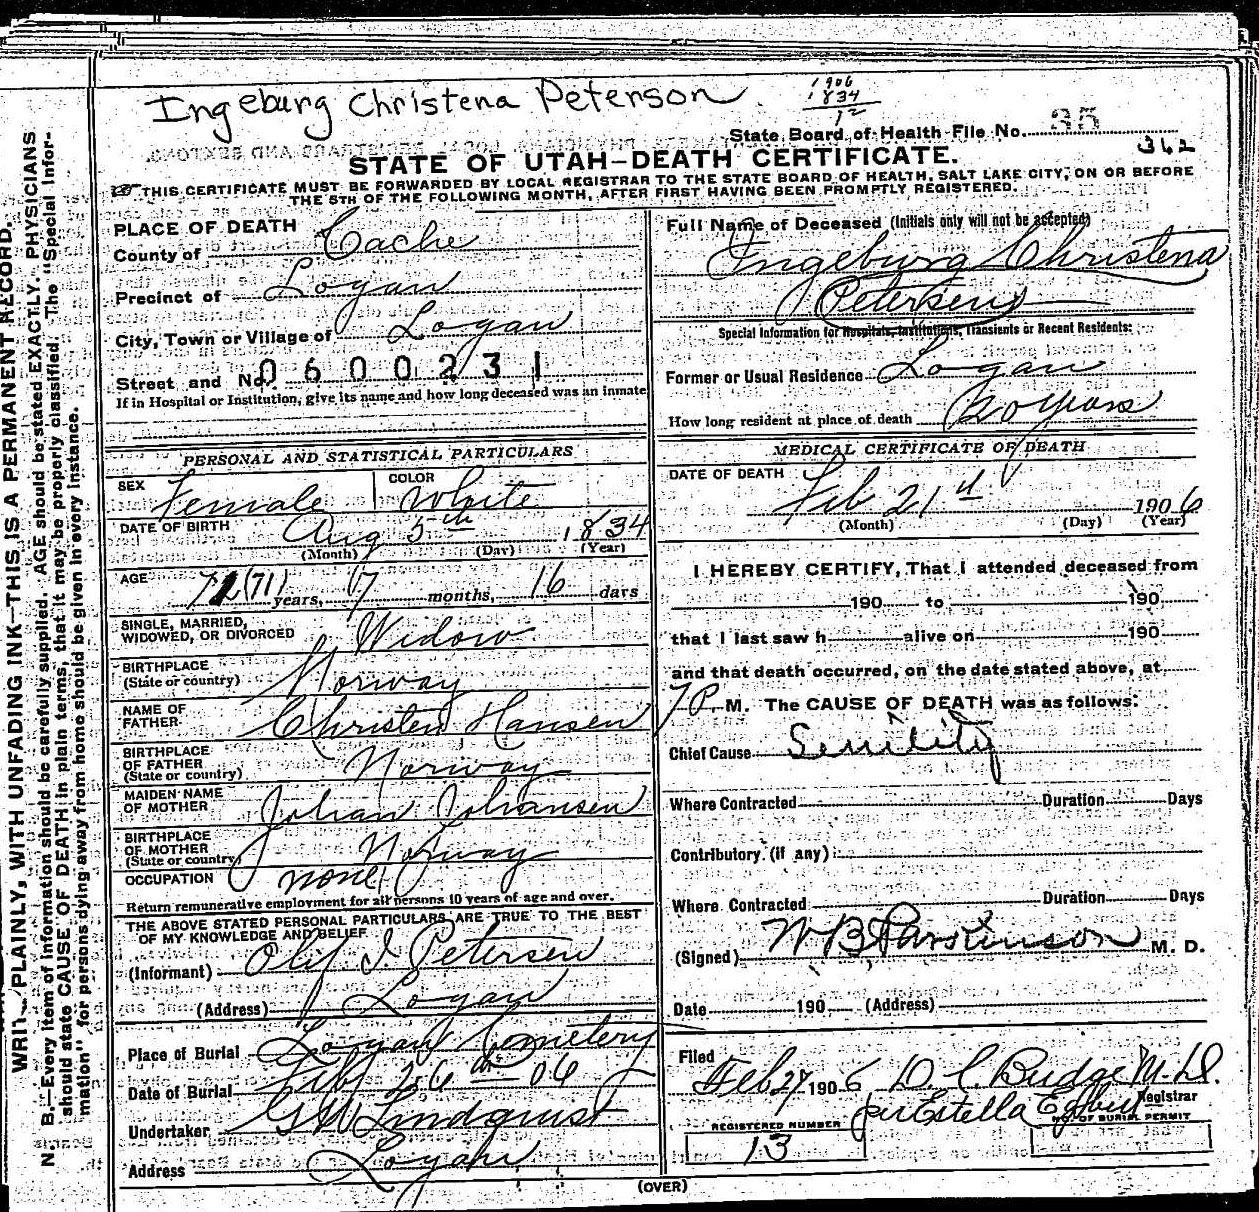 Ingeburg Christena Peterson
1906
1834
12
State Board of Health File No. 35
362
STATE OF UTAH—DEATH CERTIFICATE.
THIS CERTIFICATE MUST BE FORWARDED BY LOCAL REGISTRAR TO THE STATE BOARD OF HEALTH, SALT LAKE CITY, ON OR BEFORE
THE 5TH OF THE FOLLOWING MONTH, AFTER FIRST HAVING BEEN PROMPTLY REGISTERED.
PLACE OF DEATH
County of Cache
Precinct of Logan
City, Town or Village of Logan
Street and No. 0600231
If in Hospital or Institution, give its name and how long deceased was an inmate
PERSONAL AND STATISTICAL PARTICULARS
SEX Female COLOR White
DATE OF BIRTH Aug 5th 1834
(Month) (Day) (Year)
AGE 72 (71) years, 7 months, 16 days
SINGLE, MARRIED,
WIDOWED, OR DIVORCED Widow
BIRTHPLACE
(State or country) Norway
NAME OF
FATHER Christen Hansen
BIRTHPLACE
OF FATHER
(State or country) Norway
MAIDEN NAME
OF MOTHER Johan Johansen
BIRTHPLACE
OF MOTHER
(State or country) Norway
OCCUPATION none
Return remunerative employment for all persons 10 years of age and over.
THE ABOVE STATED PERSONAL PARTICULARS ARE TRUE TO THE BEST
OF MY KNOWLEDGE AND BELIEF
(Informant) Olif I Petersen
(Address) Logan
Place of Burial Logan Cemetery
Date of Burial Feb 26th 06
Undertaker G W Lindquist
Address Logan
Full Name of Deceased (Initials only will not be accepted)
Ingeburg Christena
Petersen
Special Information for Hospitals, Institutions, Transients or Recent Residents:
Former or Usual Residence Logan
How long resident at place of death 20 years
MEDICAL CERTIFICATE OF DEATH
DATE OF DEATH Feb 21 1906
(Month) (Day) (Year)
I HEREBY CERTIFY, That I attended deceased from
190 to 190
that I last saw h alive on 190
and that death occurred, on the date stated above, at
7 P. M. The CAUSE OF DEATH was as follows:
Chief Cause Senility
Where Contracted Duration Days
Contributory (if any)
Where Contracted Duration Days
(Signed) W B Parkinson M. D.
Date 190 (Address)
Filed
Feb 27 1906 D. C. Budge M.D.
Registrar
per Estella
REGISTERED NUMBER
13
NO. OF BURIAL PERMIT
(OVER)
WRITE PLAINLY, WITH UNFADING INK—THIS IS A PERMANENT RECORD.
N. B.—Every item of information should be carefully supplied. AGE should be stated EXACTLY. PHYSICIANS
should state CAUSE OF DEATH in plain terms, that it may be properly classified. The "Special Infor-
mation" for persons dying away from home should be given in every instance.